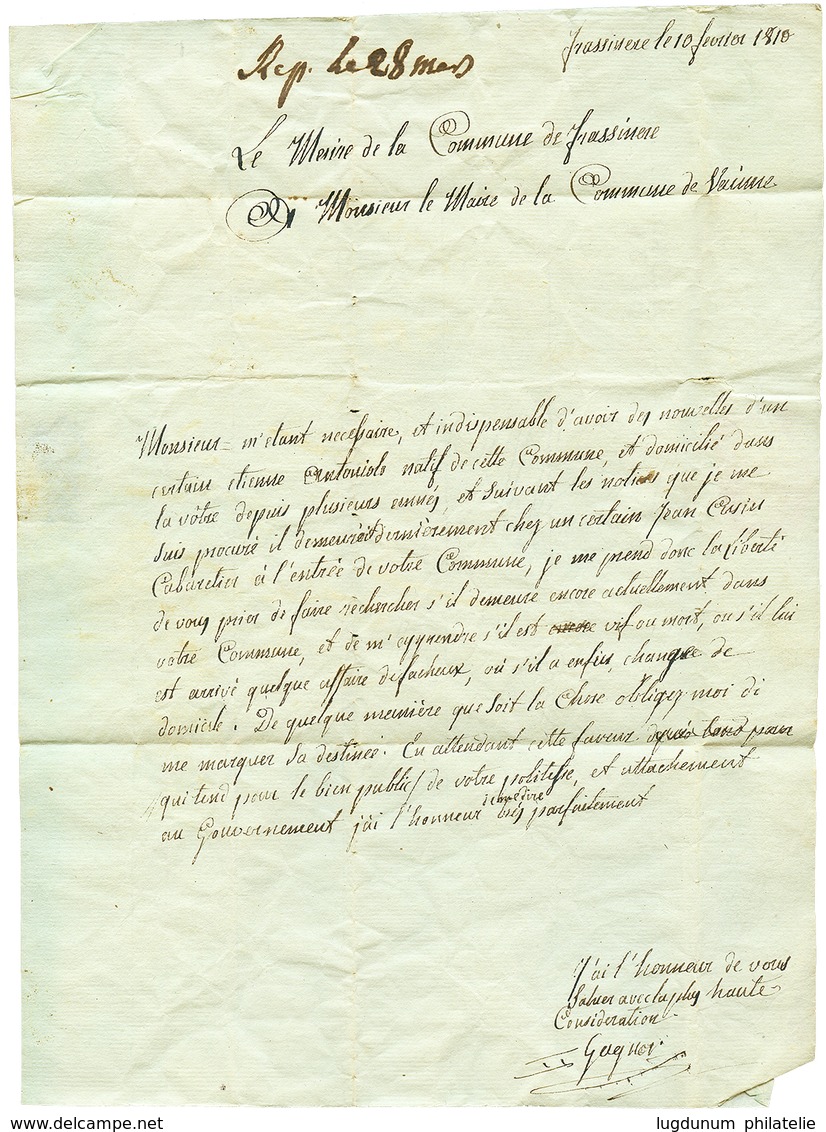 Frassinere le 10 fevrier 1810
Rep. le 28 mars
Le Maire de la Commune de Frassinere
A Monsieur le Maire de la Commune de Vaume
Monsieur = m'etant necessaire, et indispensable d'avoir des nouvelles d'un
certain etienne Antoniolo natif de cette Commune, et domicilié dans
la vôtre depuis plusieurs années, et suivant les notices que je me
suis procuré il demeuroit dernièrement chez un certain Jean Casin
Cabaretier à l'entrée de votre Commune, je me prend donc la liberté
de vous prier de faire rechercher s'il demeure encore actuellement dans
votre Commune, et de m'apprendre s'il est vif ou mort, ou s'il lui
est arrivé quelque affaire de facheux, ou s'il a enfin, changée de
domicile. De quelque manière que soit la Chose obligez moi de
me marquer sa destinée. En attendant cette faveur pour
qui tend pour le bien public/ de votre politesse, et attachement
au Gouvernement j'ai l'honneur très parfaitement
J'ai l'honneur de vous
Saluer avec la plus haute
Consideration
www.delcampe.net
lugdunum philatelie